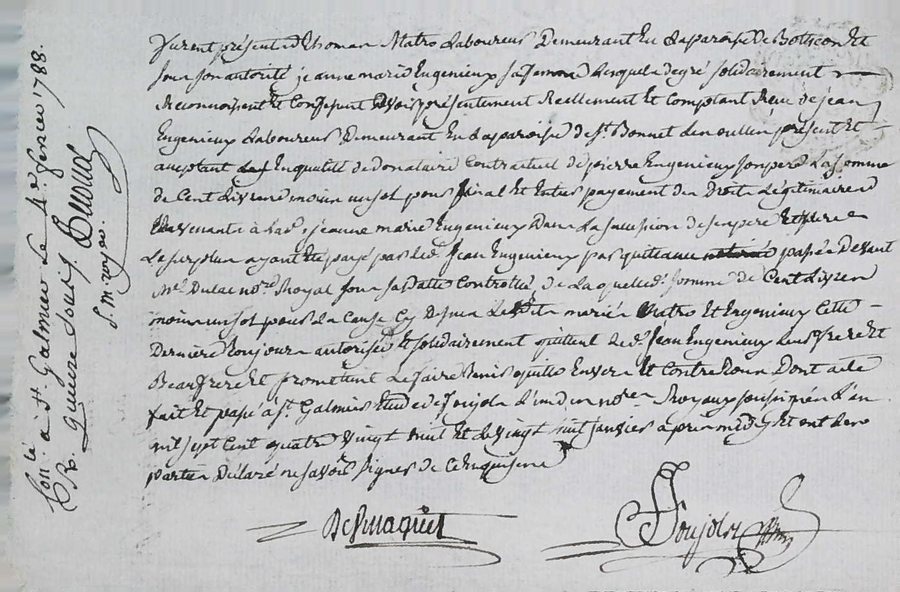 furent présent Thomas Matro Laboureur Demeurant En la paroisse de Boisset Et
sous son autorité jeanne marie Eugenieux sa femme Lesquels de gré solidairement
Reconnoissent Et Confessent avoir présentement Reellement Et Comptant Reçu de jean
Eugenieux Laboureur Demeurant En la paroisse de St Bonnet Les oulles présent Et
aceptant En qualité de donataire Contractuel de pierre Eugenieux son père La somme
de Cent Livres moins un sol pour final Et Entier payement des Droits Légitimaires
a lad. jeanne marie Eugenieux Dans La succession de son père Et
Le surplus ayant Eté payé par led. Jean Eugenieux par quittance passée Devant
Me Dulac nore Royal sous sa Datte Controllée De Laquelle d. somme de Cent Livres
moins un sol pour La Cause Cy Dessus Les dits mariés Matro Et Eugenieux Cette
Dernière toujours autorisée Et solidairement quittent led. Jean Eugenieux Leur frere Et
Beaufrere Et promettent Le faire tenir quitte Envers Et Contre tous Dont acte
fait Et passé à St Galmier Etude de Poujola L'un des nores Royaux soussignés L'an
mil sept Cent quatre vingt huit Et Le vingt huit janvier après midy Et ont Les
parties Déclaré ne savoir signer de Ce Requises
Con.lé à St. Galmier Le 4e fevrier 1788.
R. quinze sous